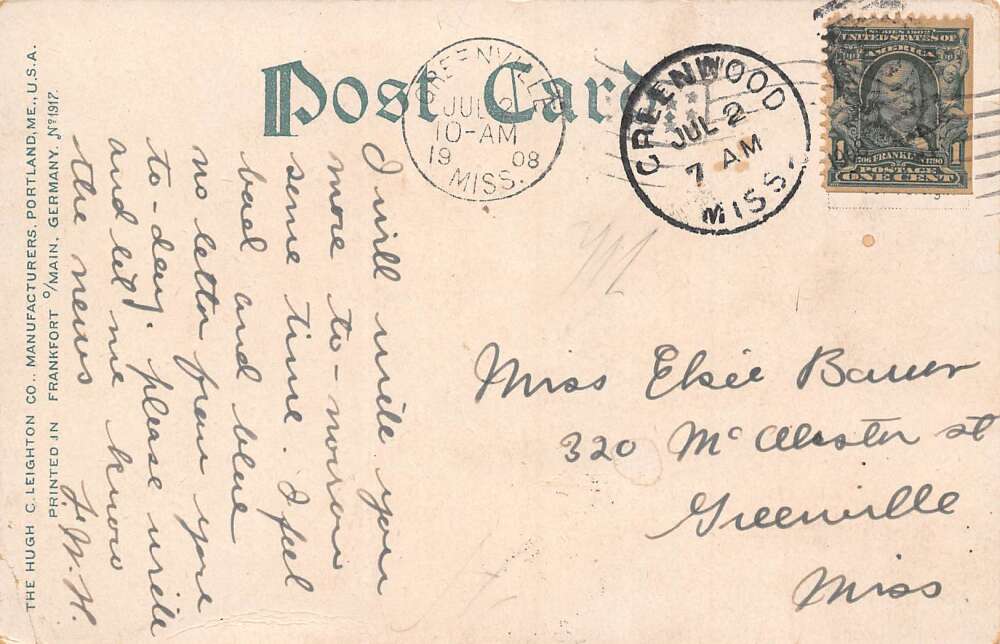 Post Card
GREENVILLE
JUL 2
10-AM
19 08
MISS.
GREENWOOD
JUL 2
7 AM
MISS.
SERIES 1902
UNITED STATES OF
AMERICA
1 FRANKLIN 1790 1
POSTAGE
ONE CENT
I will write you
more to-morrow
some time. I feel
bad and blue
no letter from you
to-day. please write
and let me know
the news
J. M. H.
Miss Elsie Bauer
320 McAlester st
Greenville
Miss
THE HUGH C. LEIGHTON CO., MANUFACTURERS, PORTLAND, ME., U.S.A.
PRINTED IN FRANKFORT o/MAIN, GERMANY. No 1917.